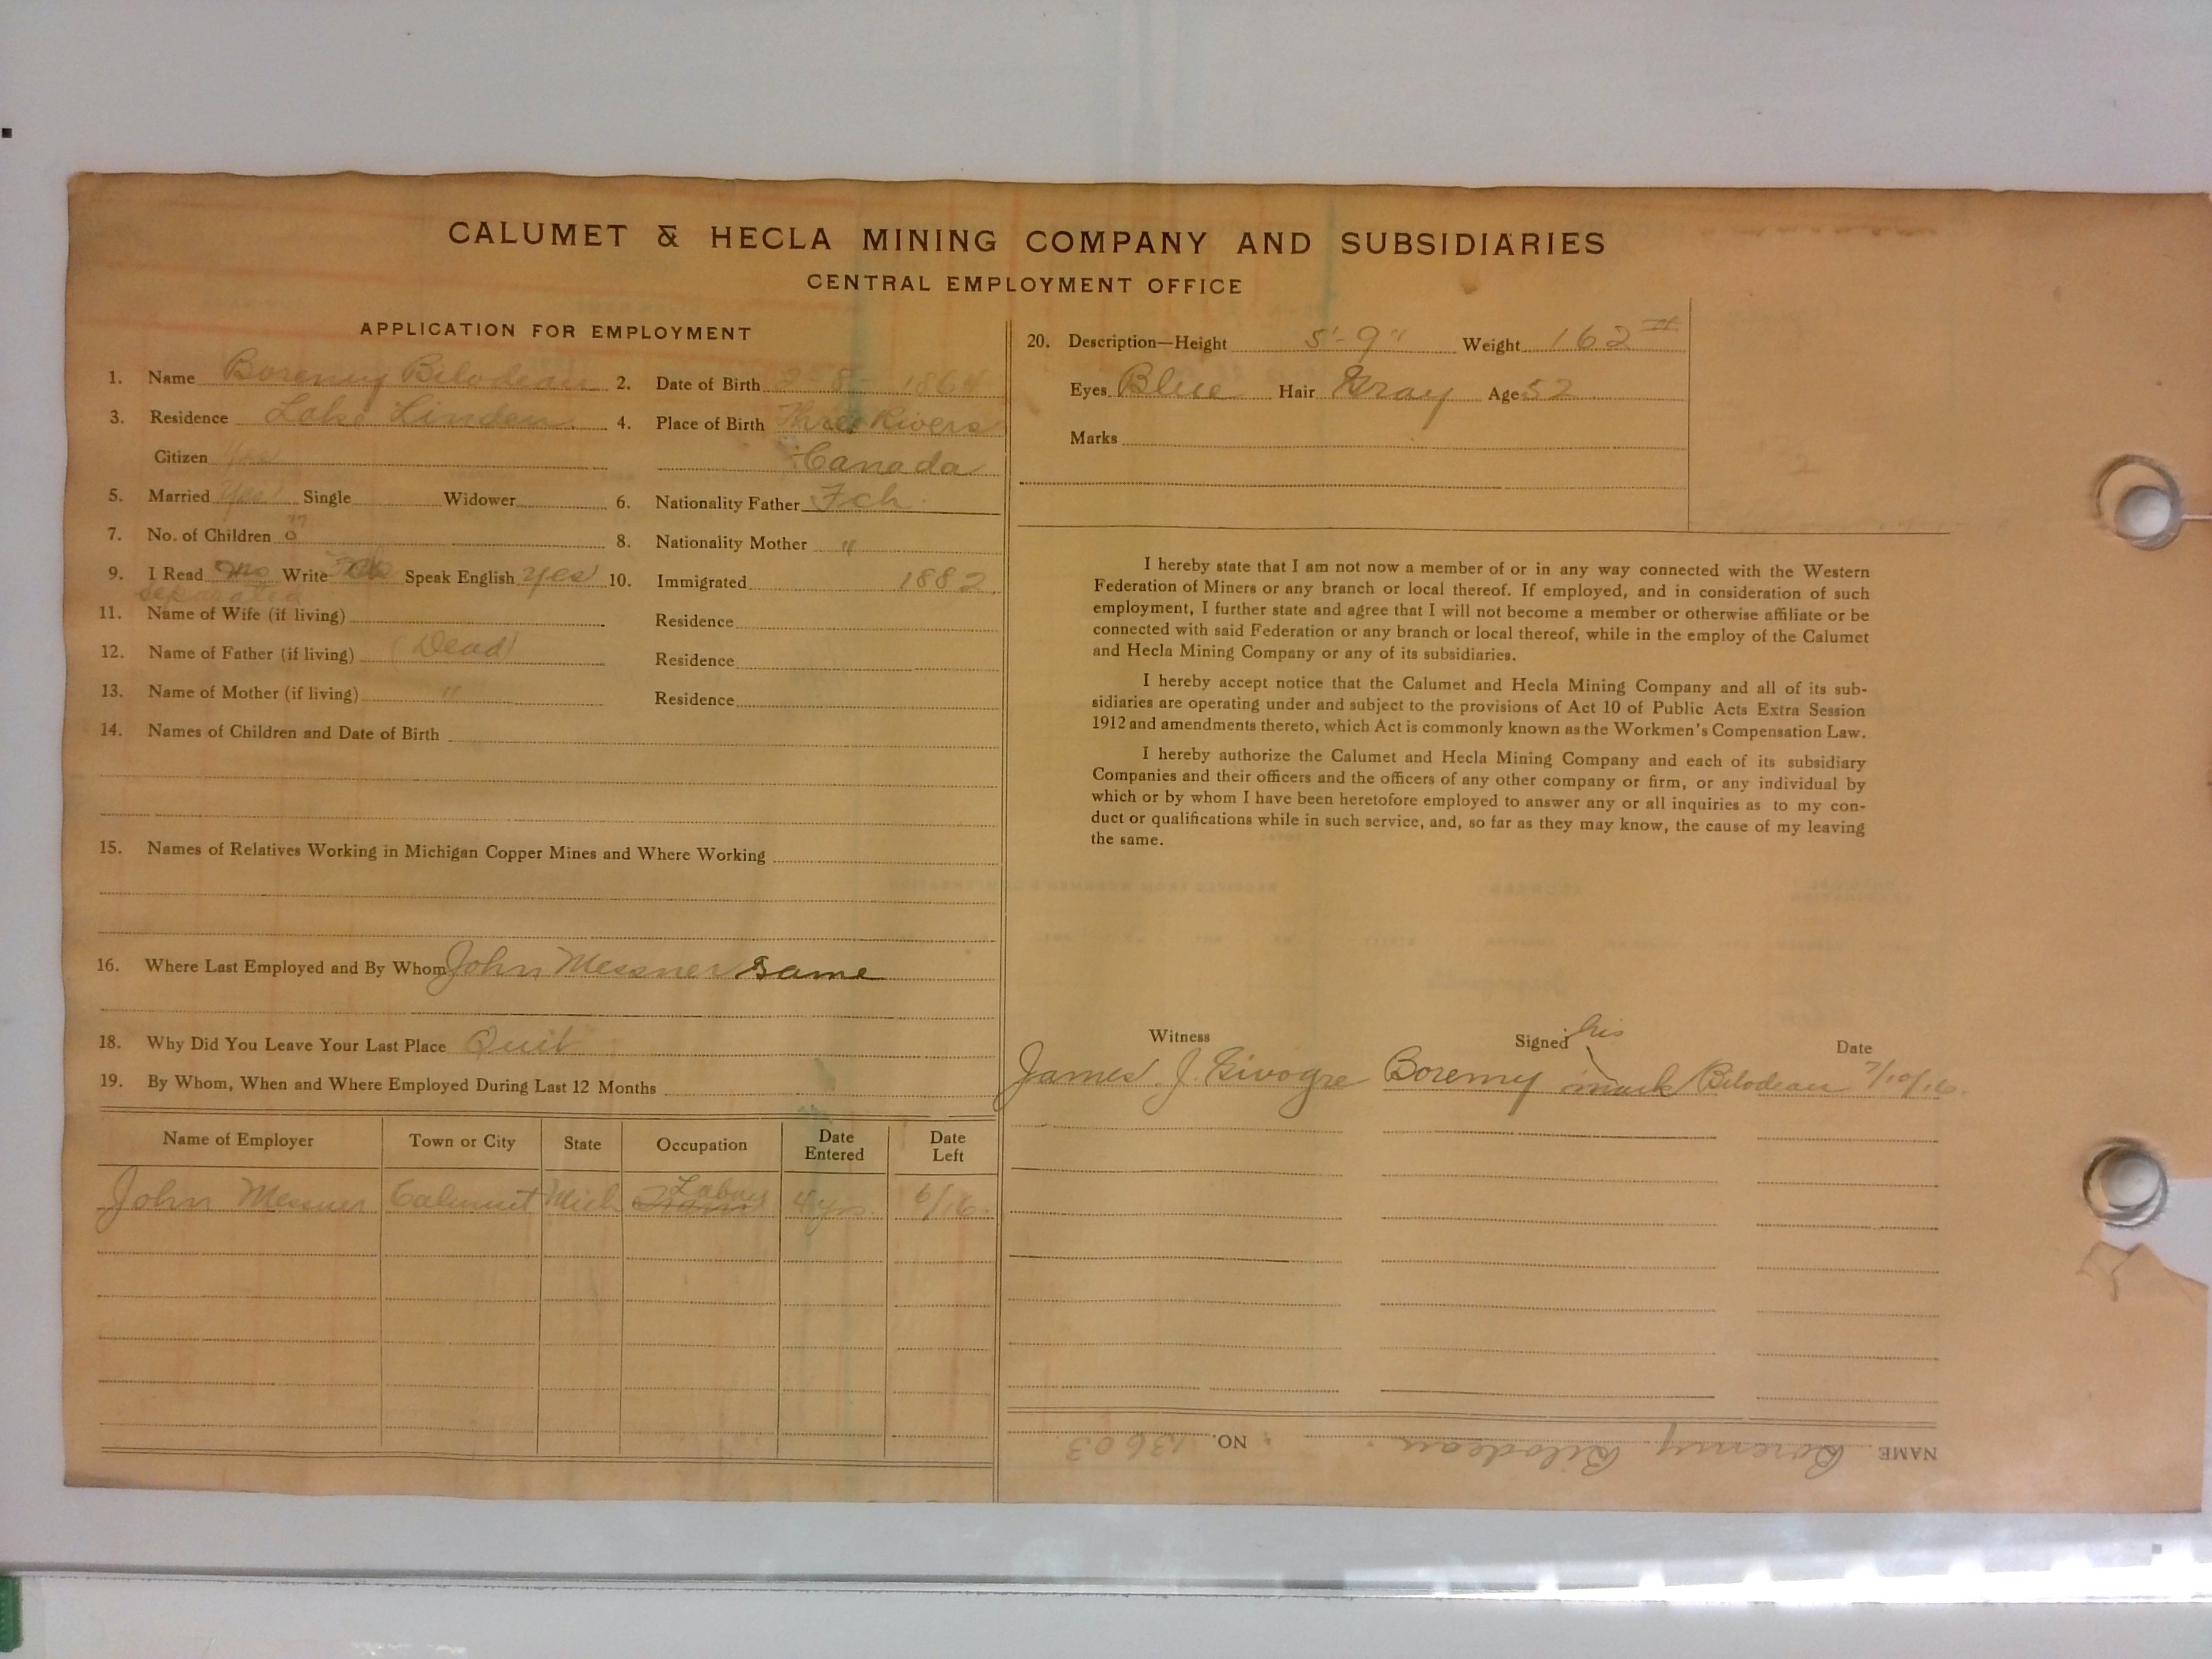 CALUMET & HECLA MINING COMPANY AND SUBSIDIARIES
CENTRAL EMPLOYMENT OFFICE
APPLICATION FOR EMPLOYMENT
1. Name Boremy Bilodeau 2. Date of Birth 1864
3. Residence Lake Linden 4. Place of Birth Three Rivers
Citizen Yes Canada
5. Married Yes Single Widower 6. Nationality Father Fch
7. No. of Children 8. Nationality Mother "
9. I Read No Write Speak English yes 10. Immigrated 1882
separated
11. Name of Wife (if living) Residence
12. Name of Father (if living) (Dead) Residence
13. Name of Mother (if living) " Residence
14. Names of Children and Date of Birth
15. Names of Relatives Working in Michigan Copper Mines and Where Working
16. Where Last Employed and By Whom John Messner same
18. Why Did You Leave Your Last Place Quit
19. By Whom, When and Where Employed During Last 12 Months
Name of Employer Town or City State Occupation Date Entered Date Left
Labor
John Messner Calumet Mich 4 yrs. 6/16.
20. Description—Height 5'-9" Weight 162 #
Eyes Blue Hair Gray Age 52
Marks
I hereby state that I am not now a member of or in any way connected with the Western
Federation of Miners or any branch or local thereof. If employed, and in consideration of such
employment, I further state and agree that I will not become a member or otherwise affiliate or be
connected with said Federation or any branch or local thereof, while in the employ of the Calumet
and Hecla Mining Company or any of its subsidiaries.
I hereby accept notice that the Calumet and Hecla Mining Company and all of its sub-
sidiaries are operating under and subject to the provisions of Act 10 of Public Acts Extra Session
1912 and amendments thereto, which Act is commonly known as the Workmen's Compensation Law.
I hereby authorize the Calumet and Hecla Mining Company and each of its subsidiary
Companies and their officers and the officers of any other company or firm, or any individual by
which or by whom I have been heretofore employed to answer any or all inquiries as to my con-
duct or qualifications while in such service, and, so far as they may know, the cause of my leaving
the same.
Witness Signed his Date
James J. Boremy mark Bilodeau 7/10/16.
NAME Boremy Bilodeau. NO. 13603